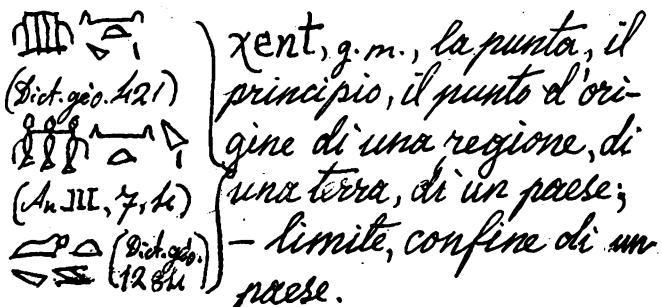 (Dict. géo. 421)
(An. III, 7, 4)
(Dict. géo. 1284)
χent, g. m., la punta, il
principio, il punto d'ori-
gine di una regione, di
una terra, di un paese;
— limite, confine di un
paese.